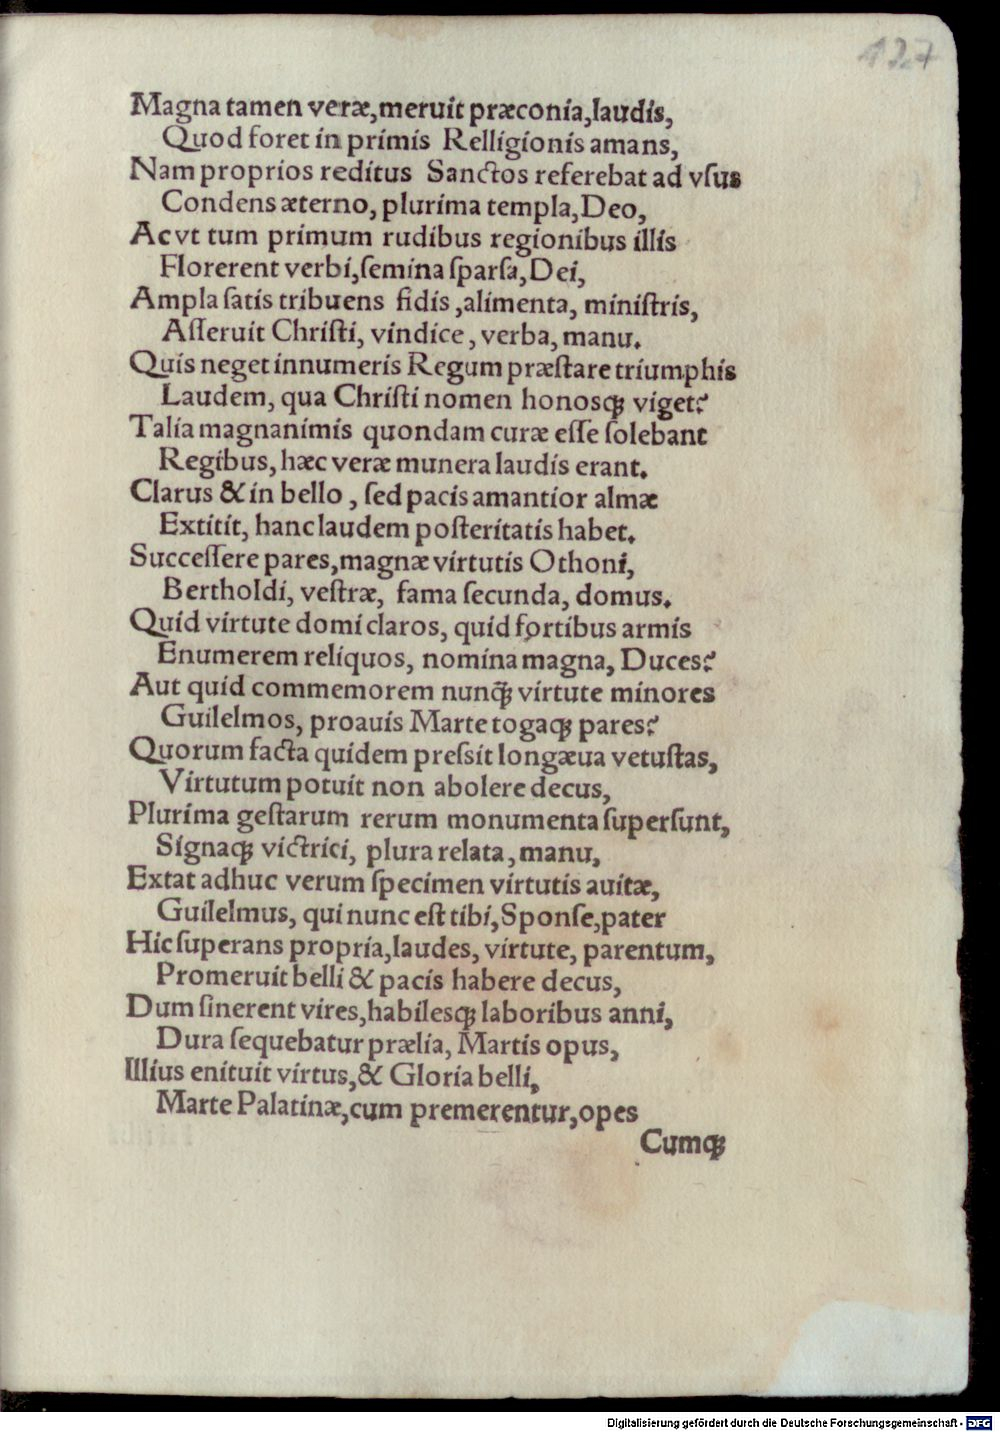 127
Magna tamen veræ,meruit præconia,laudis,
Quod foret in primis Relligionis amans,
Nam proprios reditus Sanctos referebat ad vſus
Condens æterno, plurima templa,Deo,
Ac vt tum primum rudibus regionibus illis
Florerent verbi,ſemina ſparſa,Dei,
Ampla ſatis tribuens fidis ,alimenta, miniſtris,
Aſſeruit Chriſti, vindice, verba, manu.
Quis neget innumeris Regum præſtare triumphis
Laudem, qua Chriſti nomen honosqꝫ viget?
Talia magnanimis quondam curæ eſſe ſolebant
Regibus, hæc veræ munera laudis erant.
Clarus & in bello , ſed pacis amantior almæ
Extitit, hanc laudem poſteritatis habet.
Succeſſere pares,magnæ virtutis Othoni,
Bertholdi, veſtræ, fama ſecunda, domus.
Quid virtute domi claros, quid fortibus armis
Enumerem reliquos, nomina magna, Duces?
Aut quid commemorem nunq̃ꝫ virtute minores
Guilelmos, proauis Marte togaqꝫ pares?
Quorum facta quidem preſsit longæua vetuſtas,
Virtutum potuit non abolere decus,
Plurima geſtarum rerum monumenta ſuperſunt,
Signaqꝫ victrici, plura relata, manu,
Extat adhuc verum ſpecimen virtutis auitæ,
Guilelmus, qui nunc eſt tibi,Sponſe,pater
Hic ſuperans propria,laudes, virtute, parentum,
Promeruit belli & pacis habere decus,
Dum ſinerent vires,habilesqꝫ laboribus anni,
Dura ſequebatur prælia, Martis opus,
Illius enituit virtus,& Gloria belli,
Marte Palatinæ,cum premerentur,opes
Cumqꝫ
Digitalisierung gefördert durch die Deutsche Forschungsgemeinschaft - DFG